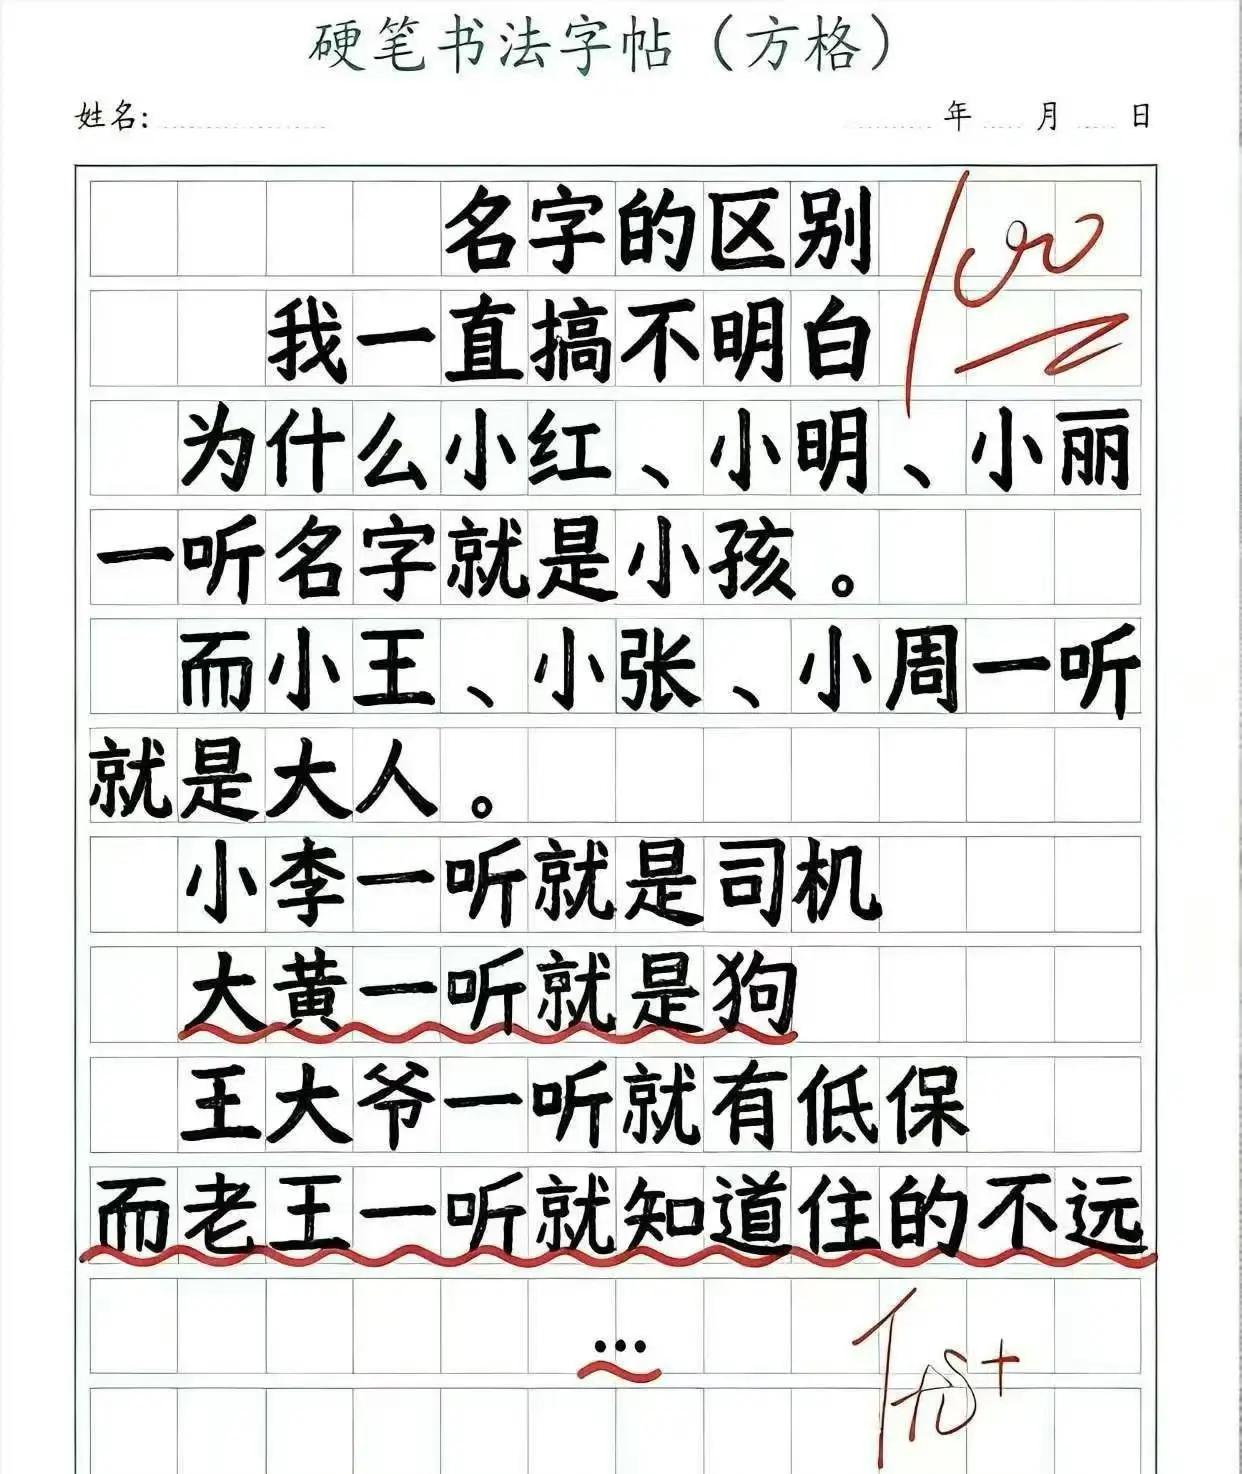 硬笔书法字帖（方格）
姓名: 年 月 日
名字的区别
100
我一直搞不明白
为什么小红、小明、小丽
一听名字就是小孩。
而小王、小张、小周一听
就是大人。
小李一听就是司机
大黄一听就是狗
王大爷一听就有低保
而老王一听就知道住的不远
...